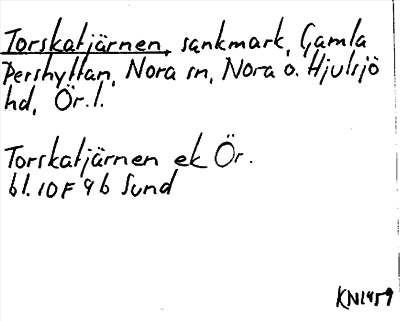 Torskatjärnen, sankmark, Gamla
Pershyttan, Nora sn, Nora o. Hjulsjö
hd, Ör. l.
Torskatjärnen ek Ör.
bl. 10F 9b Sund
KN1459